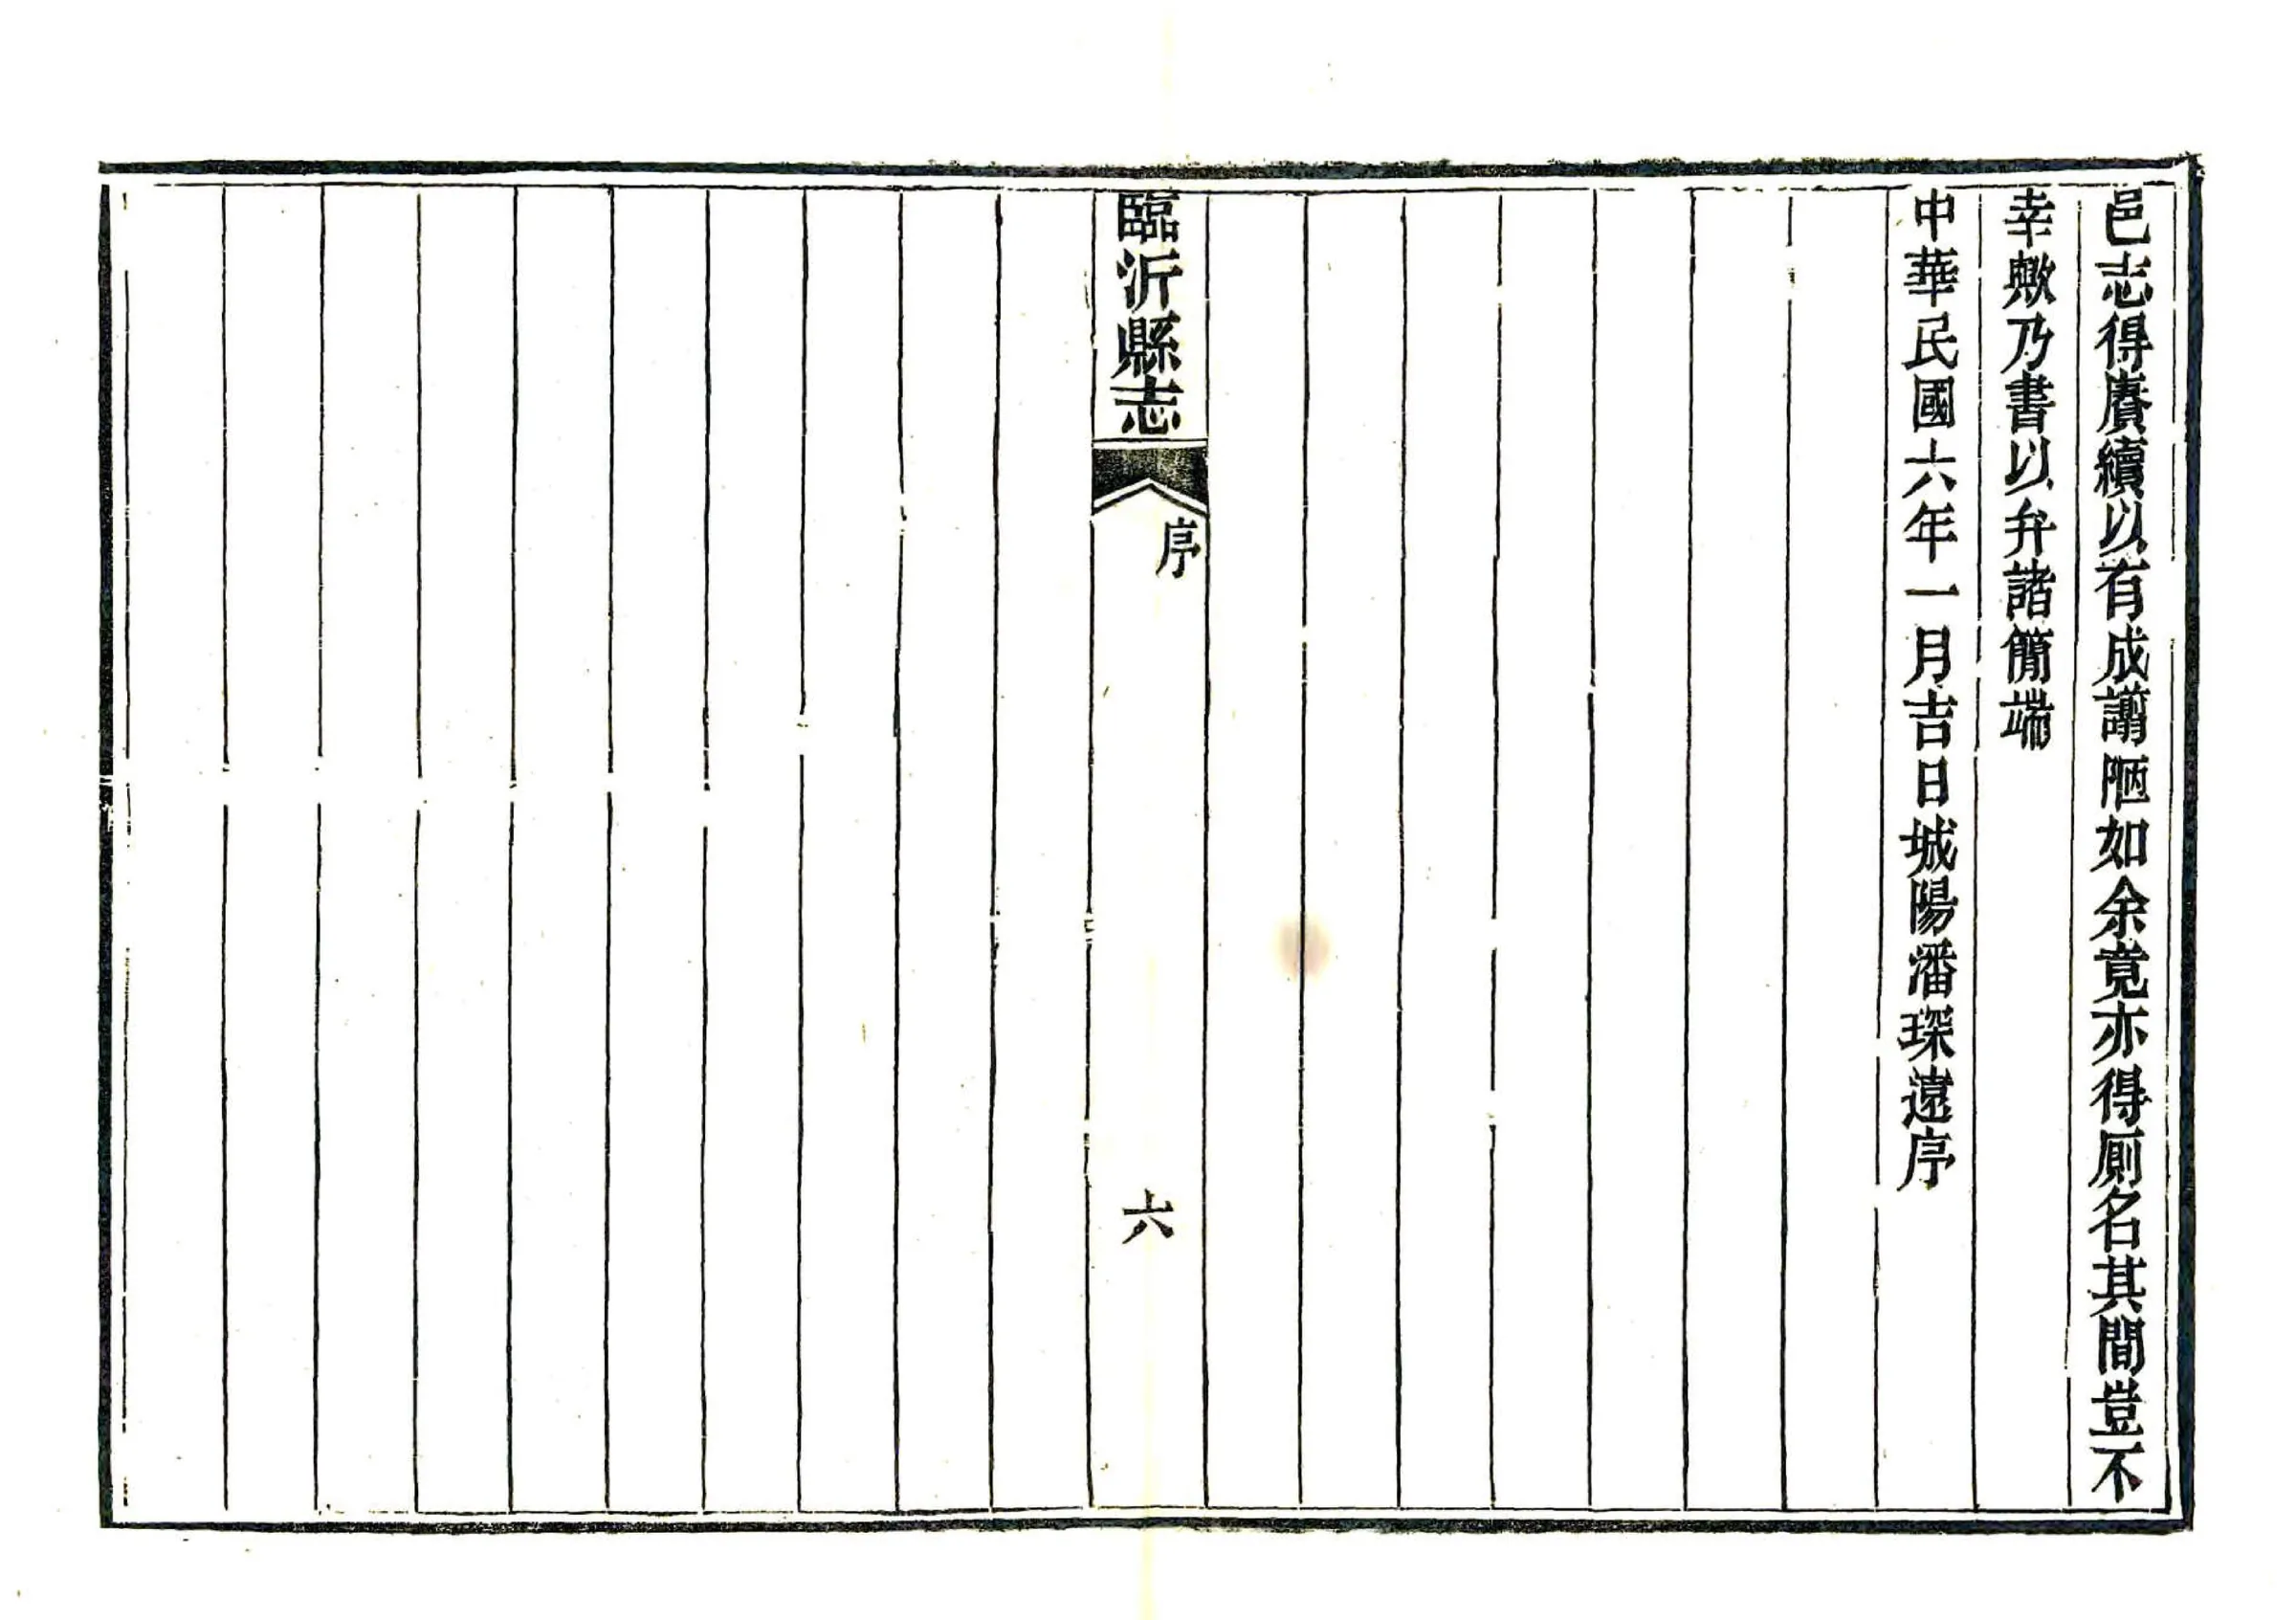 邑志得賡續以有成譾陋如余竟亦得厠名其間豈不
幸歟乃書以弁諸簡端
中華民國六年一月吉日城陽潘琛遠序
臨沂縣志
序
六